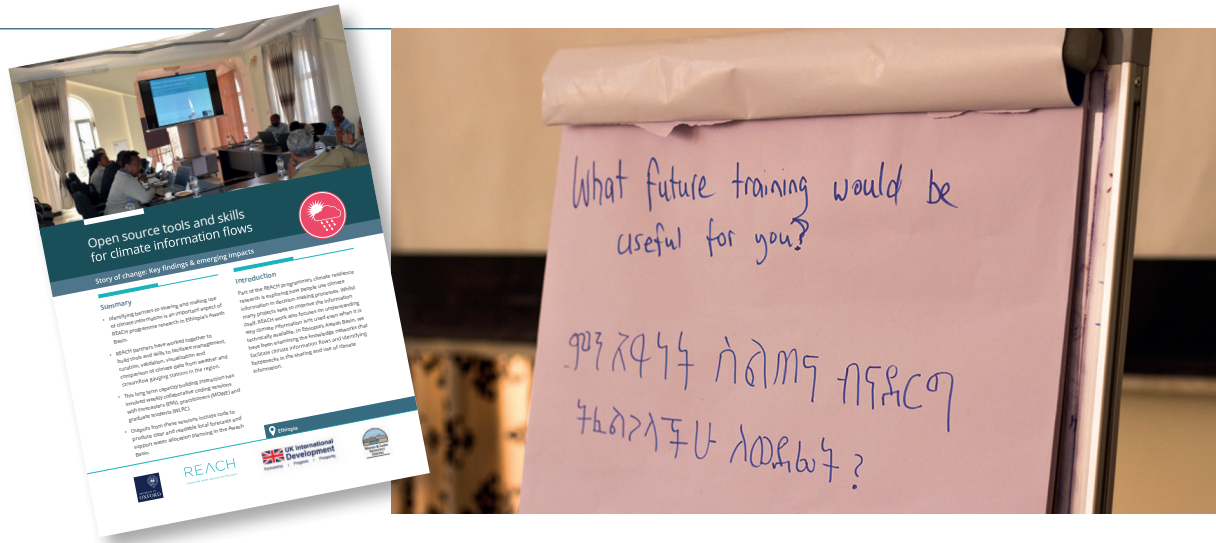 Open source tools and skills
for climate information flows
Story of change: Key findings & emerging impacts
Summary
• Identifying barriers to sharing and making use
of climate information is an important aspect of
REACH programme research in Ethiopia's Awash
Basin.
• REACH partners have worked together to
build tools and skills to facilitate management,
curation, validation, visualisation and
comparison of climate data from weather and
streamflow gauging stations in the region.
• This long term capacity building interaction has
involved weekly collaborative coding sessions
with forecasters (EMI), practitioners (MOWE) and
graduate students (WLRC).
• Outputs from these sessions include code to
produce clear and readable local forecasts and
support water allocation planning in the Awash
Basin.
Introduction
Part of the REACH programme, climate resilience
research is exploring how people use climate
information in decision-making processes. Whilst
many projects seek to improve the information
itself, REACH work also focuses on understanding
why climate information isn't used even when it is
technically available. In Ethiopia's Awash Basin, we
have been examining the knowledge networks that
facilitate climate information flows and identifying
bottlenecks in the sharing and use of climate
information.
Ethiopia
UNIVERSITY OF
OXFORD
REACH
UK International
Development
Partnership | Progress | Prosperity
What future training would be
useful for you?
ምን አይነት ስልጠና ብናደርግ
ትፈልጋላችሁ ለወደፊት ?